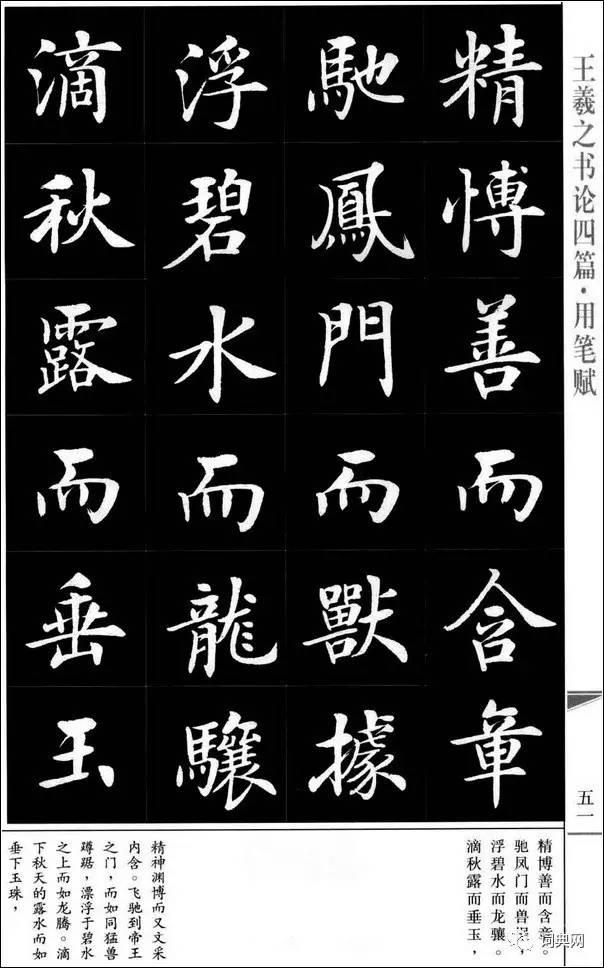 王羲之书论四篇·用笔赋
五一
精愽善而含章
馳鳳門而獸據
浮碧水而龍驤
滴秋露而垂玉
精博善而含章。
驰凤门而兽据，
浮碧水而龙骧。
滴秋露而垂玉，
精神渊博而又文采
内含。飞驰到帝王
之门，而如同猛兽
蹲踞，漂浮于碧水
之上而如龙腾。滴
下秋天的露水而如
垂下玉珠，
词典网